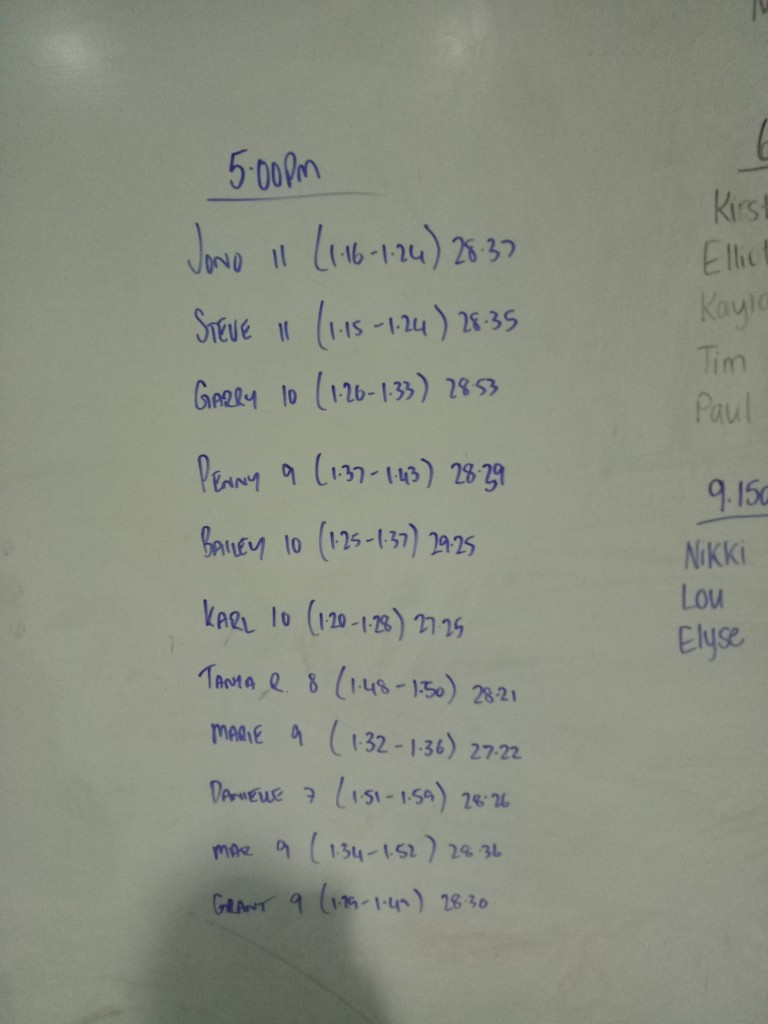 5.00Pm
JONO 11 (1.16-1.24) 28.37
STEVE 11 (1.15-1.24) 28.35
GARRY 10 (1.26-1.33) 28.53
PENNY 9 (1.37-1.43) 28.39
BAILEY 10 (1.25-1.37) 29.25
KARL 10 (1.20-1.28) 27.25
TANIA R. 8 (1.48-1.50) 28.21
MARIE 9 (1.32-1.36) 27.22
DANIELLE 7 (1.51-1.59) 28.26
MAR 9 (1.34-1.52) 28.36
GRANT 9 28.30
6
Kirst
Ellio
Kayla
Tim
Paul
9.150
Nikki
Lou
Elyse